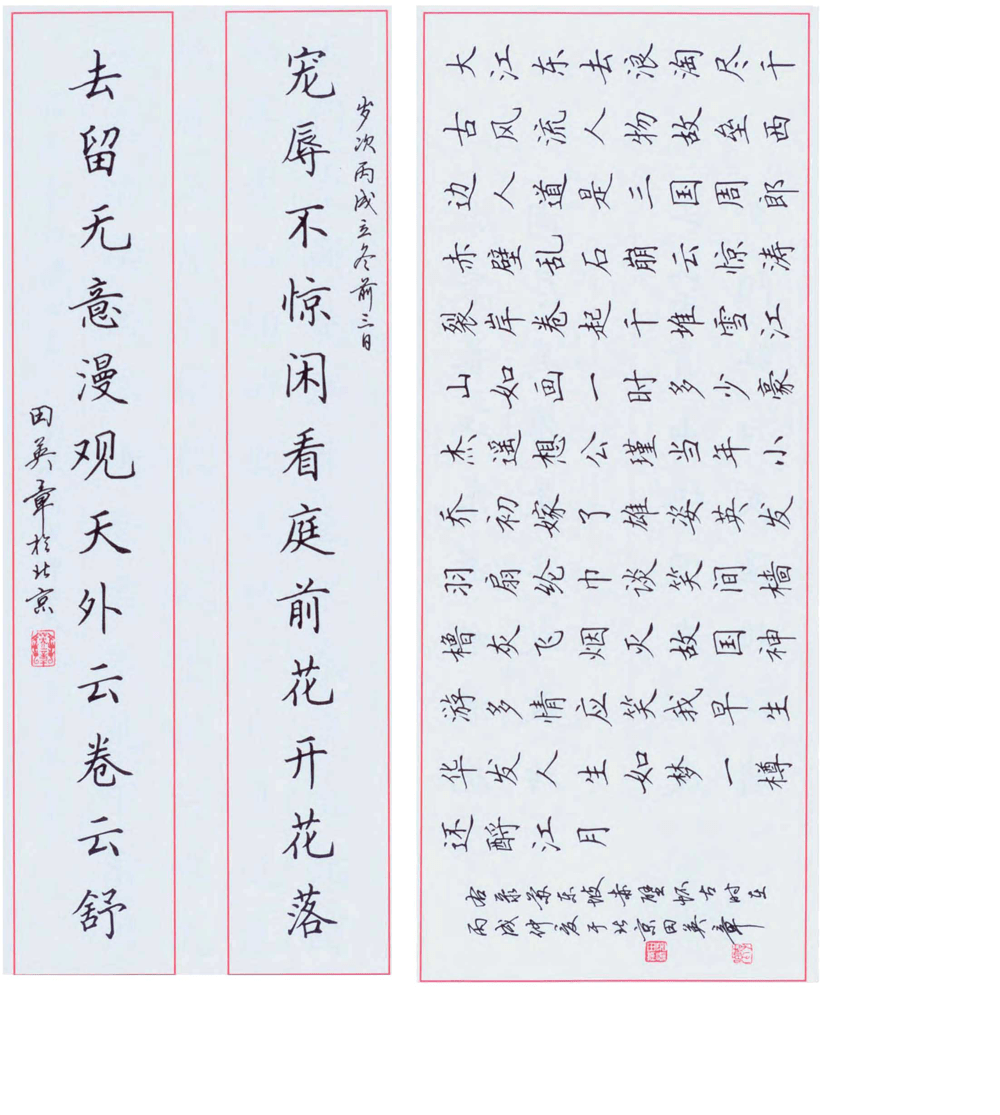 岁次丙戌立冬前三日
宠辱不惊闲看庭前花开花落
去留无意漫观天外云卷云舒
田英章於北京
大江东去浪淘尽千
古风流人物故垒西
边人道是三国周郎
赤壁乱石崩云惊涛
裂岸卷起千堆雪江
山如画一时多少豪
杰遥想公瑾当年小
乔初嫁了雄姿英发
羽扇纶巾谈笑间樯
橹灰飞烟灭故国神
游多情应笑我早生
华发人生如梦一樽
还酹江月
右录苏东坡赤壁怀古时在
丙戌仲夏于北京田英章